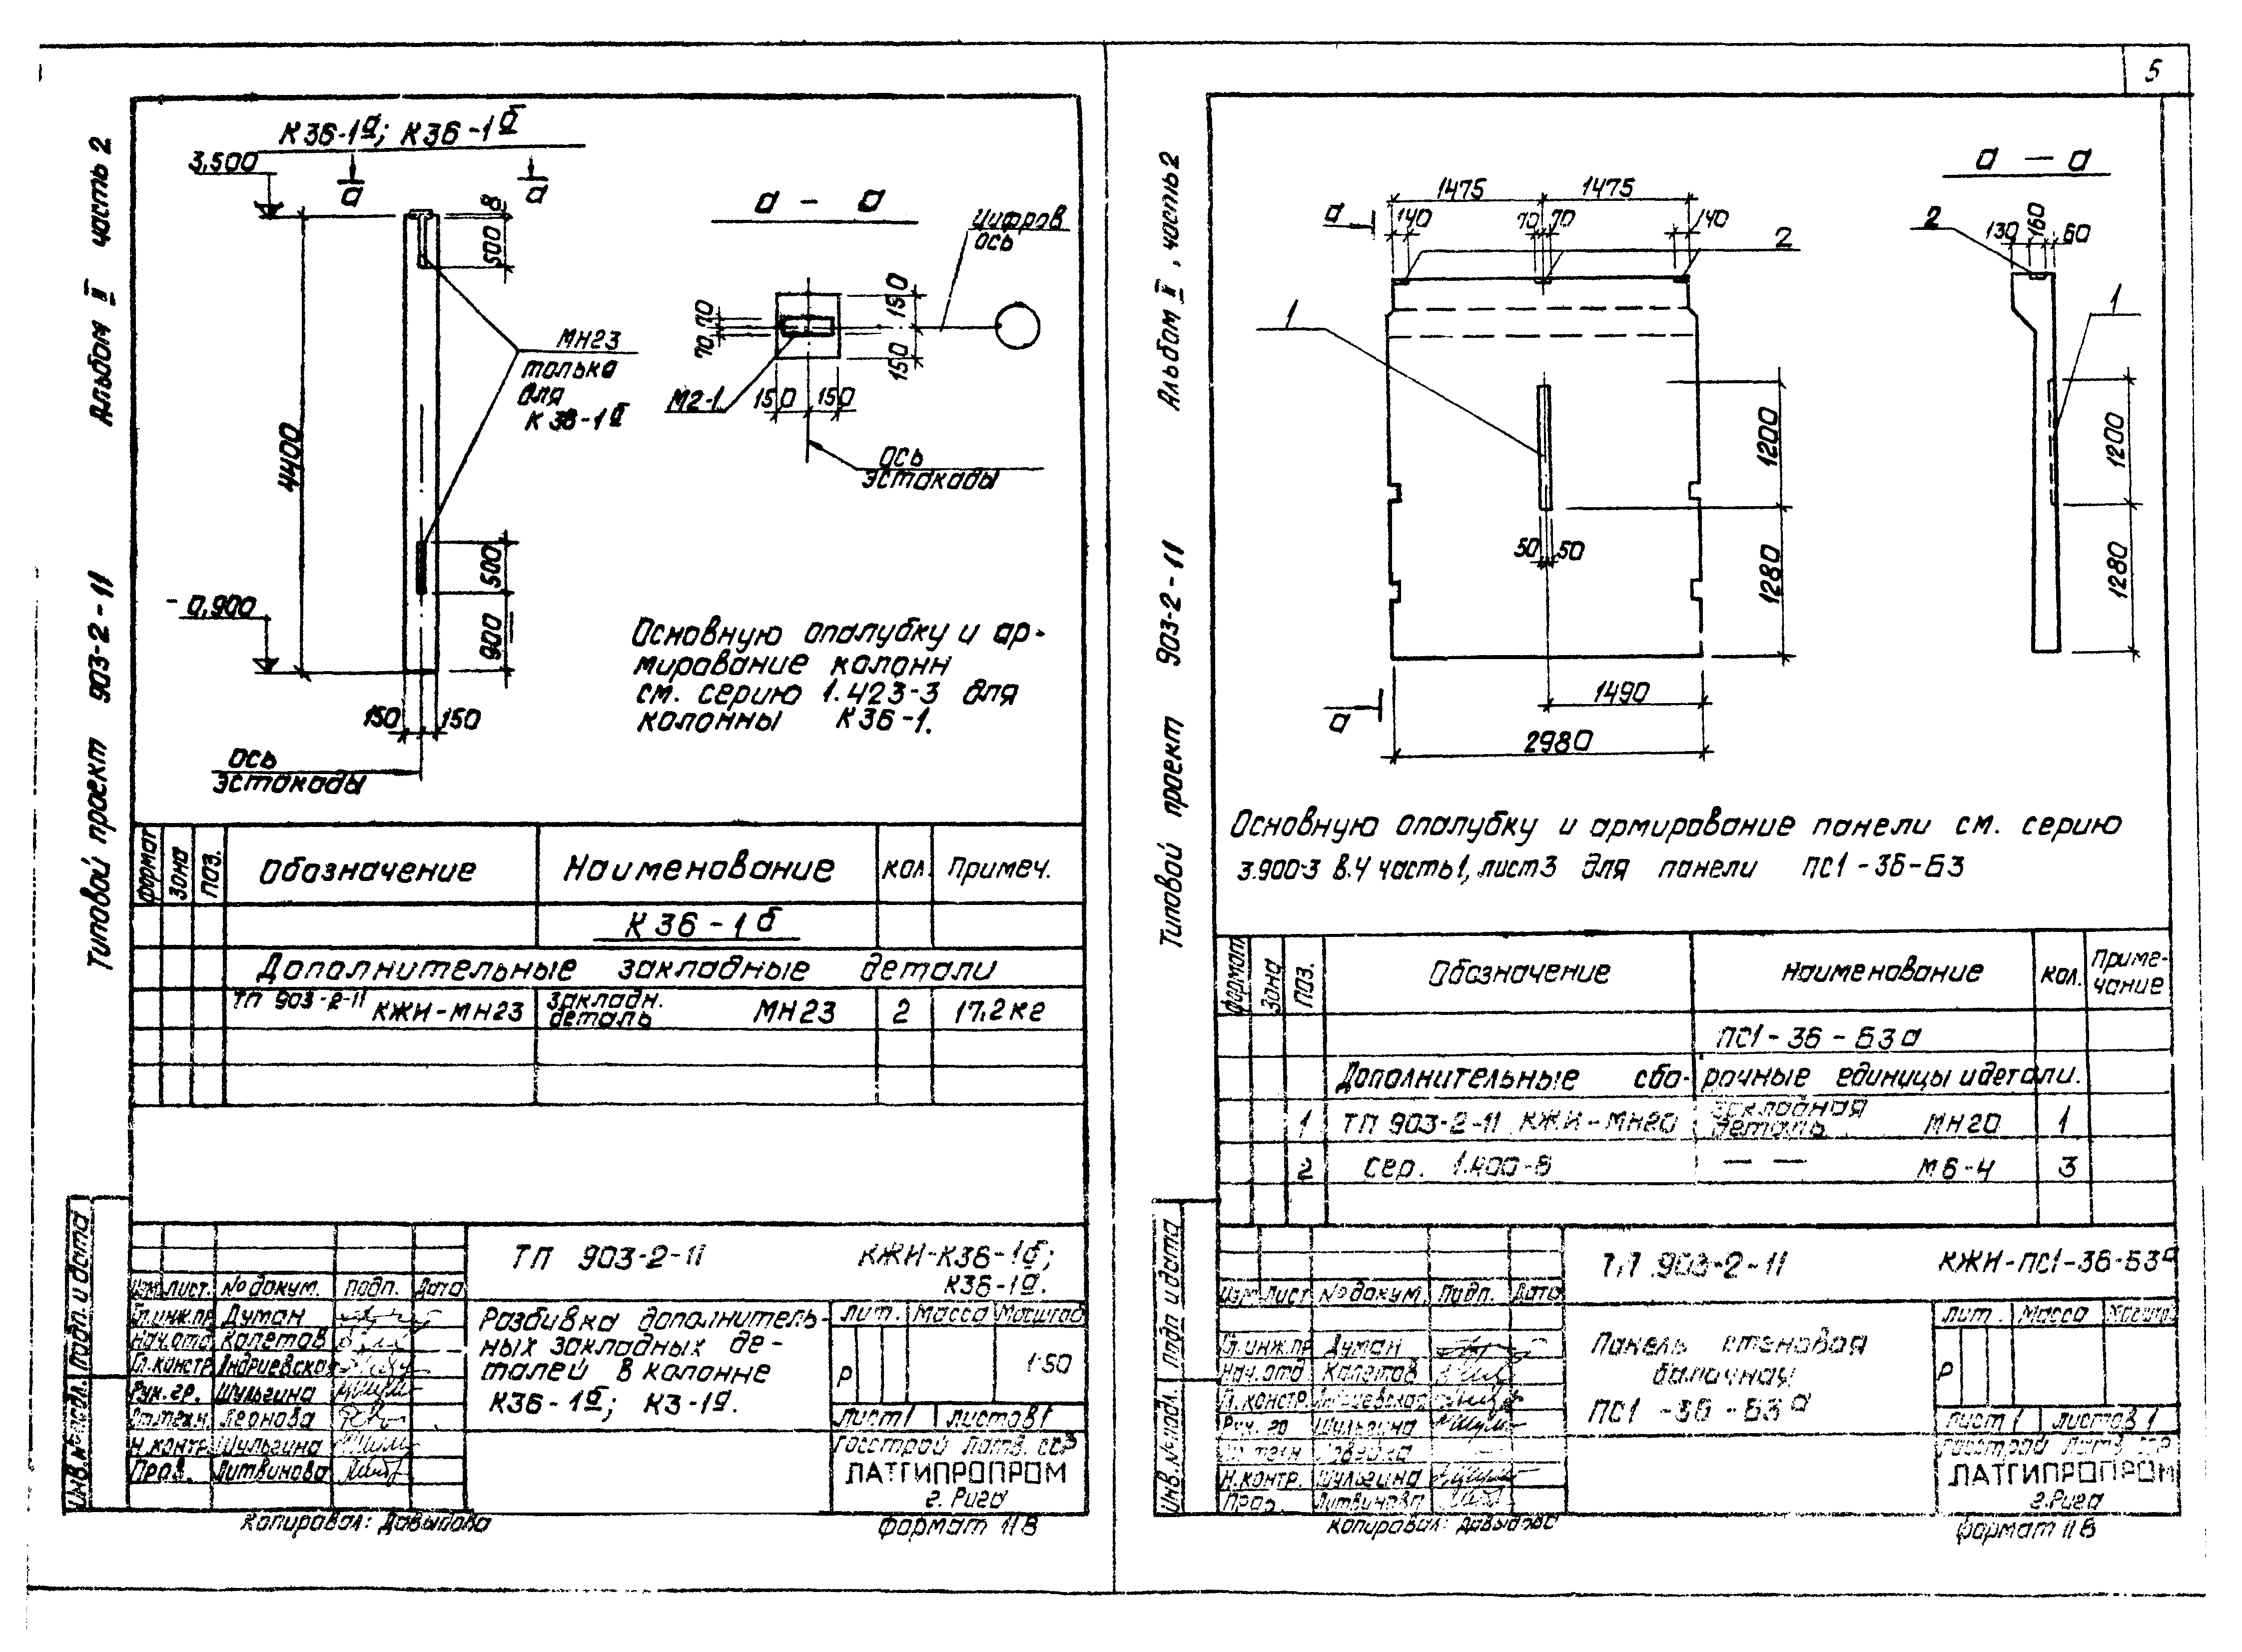 5
Альбом II часть 2
Типовой проект 903-2-11
К36-1а; К36-1б
3,500
а
а
500
8
4400
МН23
только
для
К 36-1б
500
900
-0,900
150
150
ось
эстакады
а - а
цифров
ось
70
70
150
150
М2-1
150
150
ось
эстакады
Основную опалубку и ар-
мирование колонн
см. серию 1.423-3 для
колонны К36-1.
формат
зона
поз.
Обозначение
Наименование
кол.
Примеч.
К 36-1б
Дополнительные закладные детали
ТП 903-2-11 КЖИ-МН23
закладн.
деталь
МН23
2
17.2 кг
Инв.№ подл.
Подп. и дата
ТП 903-2-11
КЖИ-К36-1б;
К36-1а.
Изм. лист. № докум. подп. Дата
Гл.инж.пр. Думан
Нач.отд Капетов
Гл.констр. Андриевская
Рук.гр. Шульгина
Ст.техн. Леонова
Н.контр. Шульгина
Пров. Литвинова
Разбивка дополнитель-
ных закладных де-
талей в колонне
К36-1б; К3-1а.
Лит. Масса Масштаб
Р
1:50
лист 1 листов 1
Госстрой Латв. ССР
ЛАТГИПРОПРОМ
г. Рига
Копировал: Давыдова
формат 11В
Альбом II, часть 2
Типовой проект 903-2-11
1475
1475
а
140
70
70
140
2
1
1200
1280
50
50
1490
а
2980
а - а
2
130
160
60
1
1200
1280
Основную опалубку и армирование панели см. серию
3.900-3 в.4 часть 1, лист 3 для панели ПС1-36-Б3
формат
Зона
поз.
Обозначение
Наименование
кол.
Приме-
чание
ПС1-36-Б3а
Дополнительные сбо-рочные единицы и детали.
1
ТП 903-2-11 КЖИ-МН20
закладная
деталь
МН20
1
2
сер. 1.400-6
— —
М6-4
3
Инв.№ подл.
Подп и дата
ТП 903-2-11
КЖИ-ПС1-36-Б3а
Изм Лист № докум. Подп. Дата
Гл.инж.пр Думан
Нач.отд Капетов
Гл.констр. Андриевская
Рук.гр Шульгина
Ст.техн
Н.контр. Шульгина
Пров. Литвинова
Панель стеновая
балочная
ПС1-36-Б3а
Лит. Масса Масштаб
Р
Лист 1 листов 1
Госстрой Латв ССР
ЛАТГИПРОПРОМ
г.Рига
Копировал: Давыдова
формат 11В